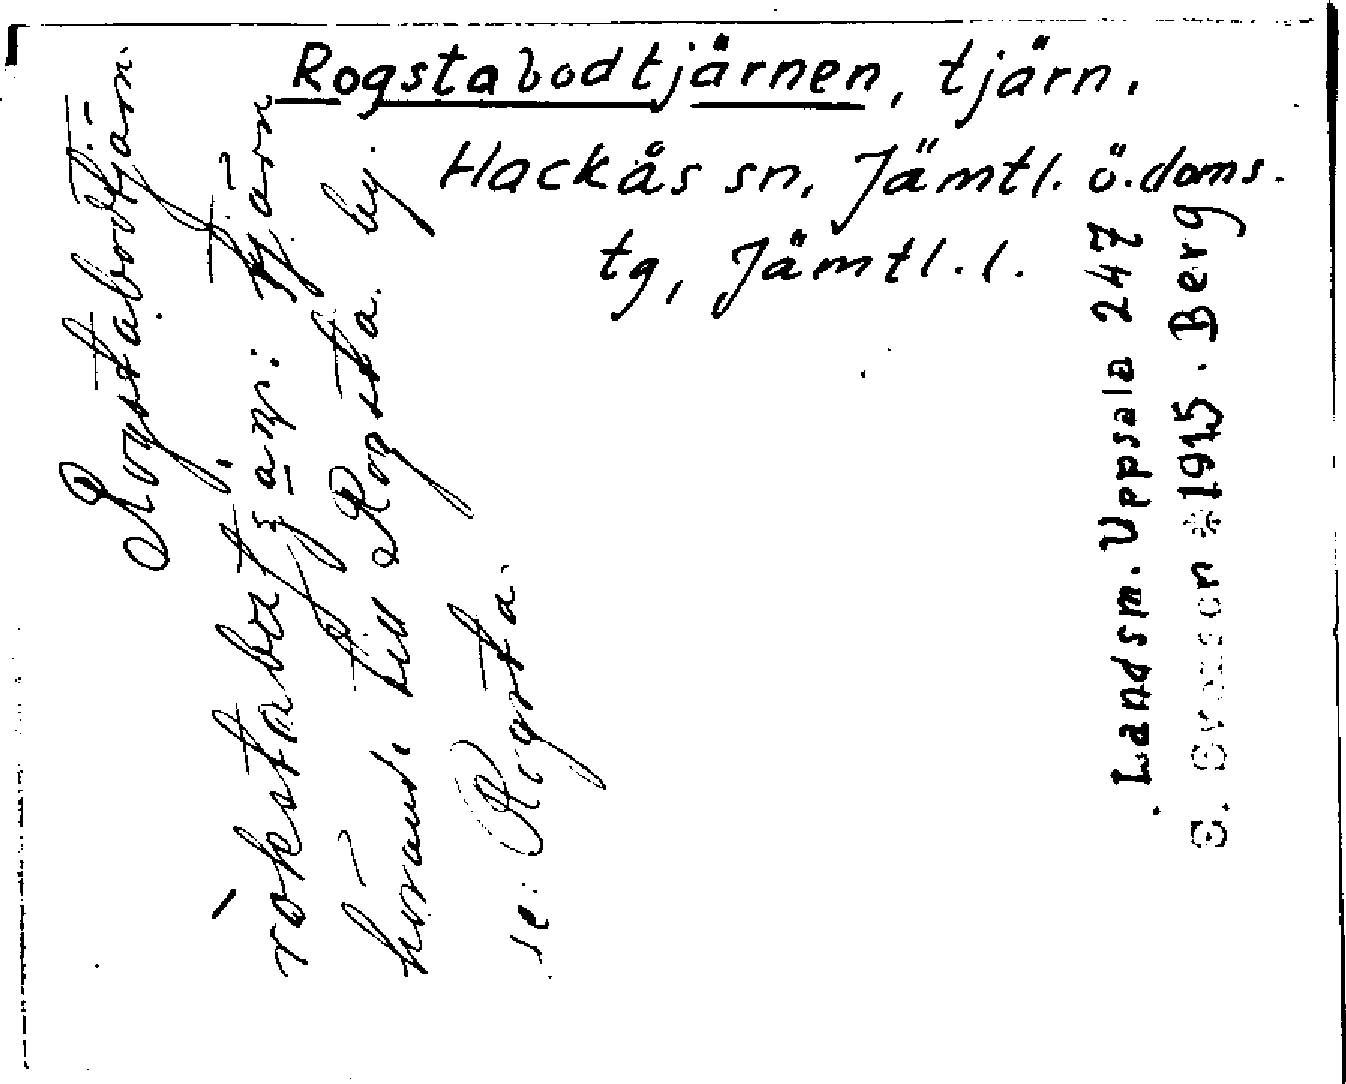 Rogstabodtjärnen, tjärn.
Hackås sn, Jämtl. ö. doms.
tg, Jämtl. l.
Rogstabodtjärn. Tj
tjärn
hvand. till Rogsta. by.
se: Rogsta.
Landsm. Uppsala 247
S. 1915. Berg